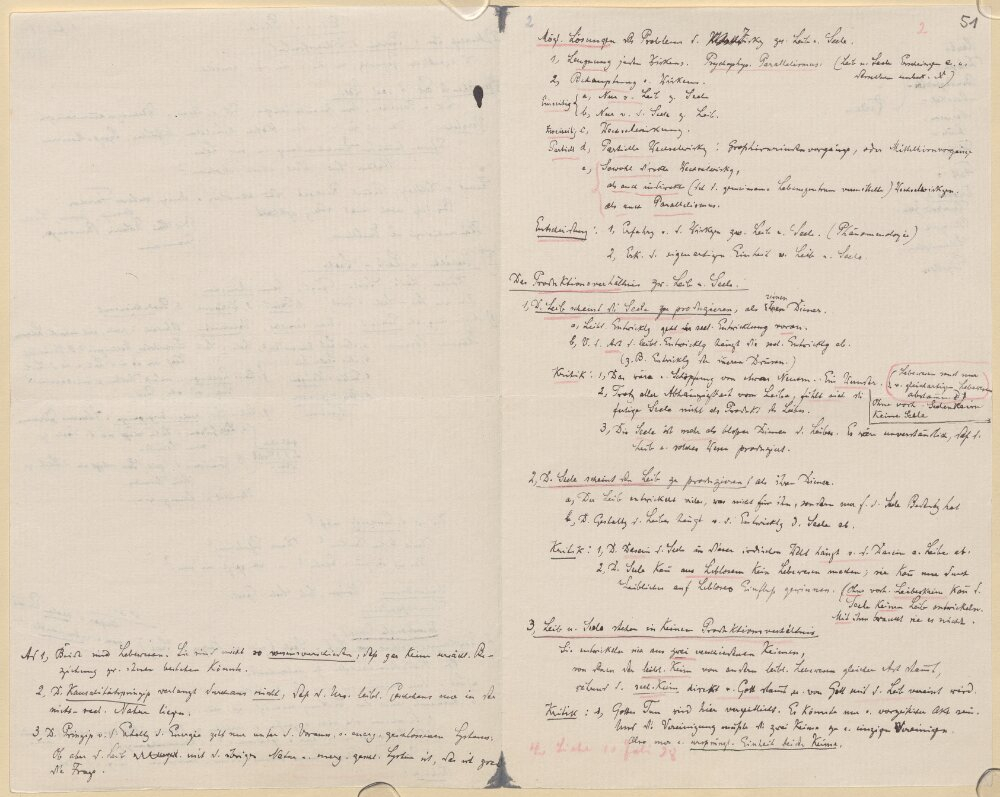 2
2
51
Mögl. Lösungen des Problems d. Wirkg zw. Leib u. Seele.
1, Leugnung jeden Wirkens. Psychophys. Parallelismus. (Leib u. Seele Erscheinungen e. u.
desselben unbek. X)
2, Behauptung e. Wirkens.
Einseitig a, Nur v. Leib z. Seele
b, Nur v. d. Seele z. Leib.
Zweiseitig c, Wechselwirkung.
Partiell d, Partielle Wechselwirkg: Großhirnrindenvorgänge, oder Mittelhirnvorgänge
e, Sowohl direkte Wechselwirkg,
als auch indirekte (bei d. gemeinsame Lebenszentrum vermittelte) Wechselwirkungen.
als auch Parallelismus.
Entscheidung: 1, Erfahrg v. d. Wirkgen zw. Leib u. Seele. (Phänomenologie)
2, Erk. d. eigenartigen Einheit v. Leib u. Seele.
Das Produktionsverhältnis zw. Leib u. Seele.
1, D. Leib scheint die Seele zu produzieren, als seinen Diener.
a, Leibl. Entwicklg geht der seel. Entwicklung voran.
b, V. d. Art d. leibl. Entwicklg hängt die seel. Entwicklg ab.
(z. B. Entwicklg der inneren Drüsen.)
Kritik: 1, Das wäre e. Schöpfung von etwas Neuem. Ein Wunder.
Lebewesen sind nur
v. gleichartigen Lebewesen
abstammd
2, Trotz aller Abhängigkeit vom Leibe, fühlt sich die
fertige Seele nicht als Produkt des Leibes.
Ohne vorh. Seelenkeim
keine Seele
3, Die Seele ist mehr als bloßer Diener d. Leibes. Es wäre unverständlich, daß d.
Leib e. solches Wesen produziert.
2, D. Seele scheint den Leib zu produzieren, als ihren Diener.
a, Der Leib entwickelt vieles, was nicht für ihn, sondern nur f. d. Seele Bedeutg hat
b, D. Gestaltg d. Leibes hängt v. d. Entwicklg d. Seele ab.
Kritik: 1, D. Dasein d. Seele in dieser irdischen Welt hängt v. d. Dasein e. Leibes ab.
2, D. Seele kann aus Leblosem kein Lebewesen machen; sie kann nur durch
Leibliches auf Lebloses Einfluß gewinnen. (Ohne vorh. Leibeskeim kann d.
Seele keinen Leib entwickeln.
Mit ihm braucht sie es nicht.
3, Leib u. Seele stehen in keinem Produktionsverhältnis
Sie entwickeln sie aus zwei vereinigten Keimen,
von denen der leibl. Keim von andern leibl. Lebewesen gleicher Art stammt,
während d. seel. Keim direkt v. Gott stammt u. von Gott mit d. Leib vereint wird.
Kritik: Gottes Tun wird hier vergöttlicht. Es könnte nur e. vorzeitiger Akt sein.
Und die Vereinigung müßte die zwei Keime zu e. einzigen vereinigen.
Also nur e. ursprüngl. Einheit beider Keime.
Ad 1, Beide sind Lebewesen. Sie sind nicht so wesensverschieden, daß gar keine ursächl. Be-
ziehung zw. ihnen bestehen könnte.
2, D. Kausalitätsprinzip verlangt durchaus nicht, daß d. Urs. leibl. Geschehens nur in der
nicht-seel. Natur liegen.
3, D. Prinzip v. d. Erhaltg d. Energie gilt nur unter d. Voraus. e. energ. geschlossenen Systems.
Ob aber d. Leib mit d. übrigen Natur e. energ. geschl. System ist, das ist grade
die Frage.